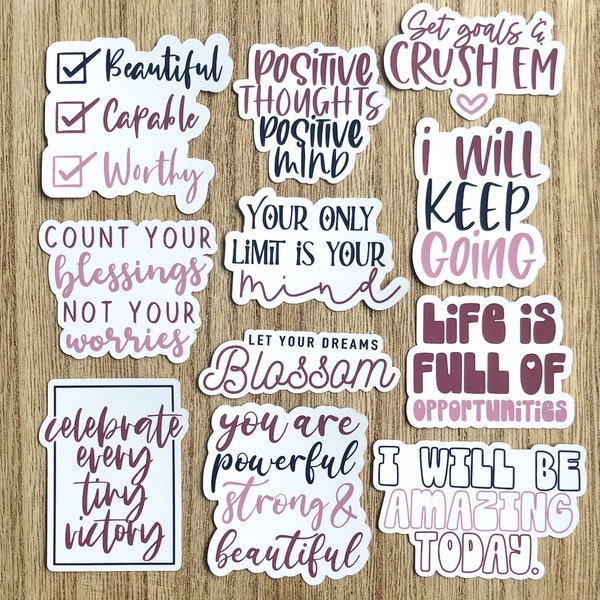 Beautiful
Capable
Worthy
POSITIVE
THOUGHTS
POSITIVE
MIND
Set goals &
CRUSH EM
i WILL
KEEP
GOING
COUNT YOUR
blessings
NOT YOUR
worries
YOUR ONLY
LIMIT IS YOUR
mind
LET YOUR DREAMS
Blossom
LiFE iS
FULL OF
OPPORTUNiTiES
celebrate
every
tiny
victory
you are
powerful
strong &
beautiful
I WILL BE
AMAZING
TODAY.